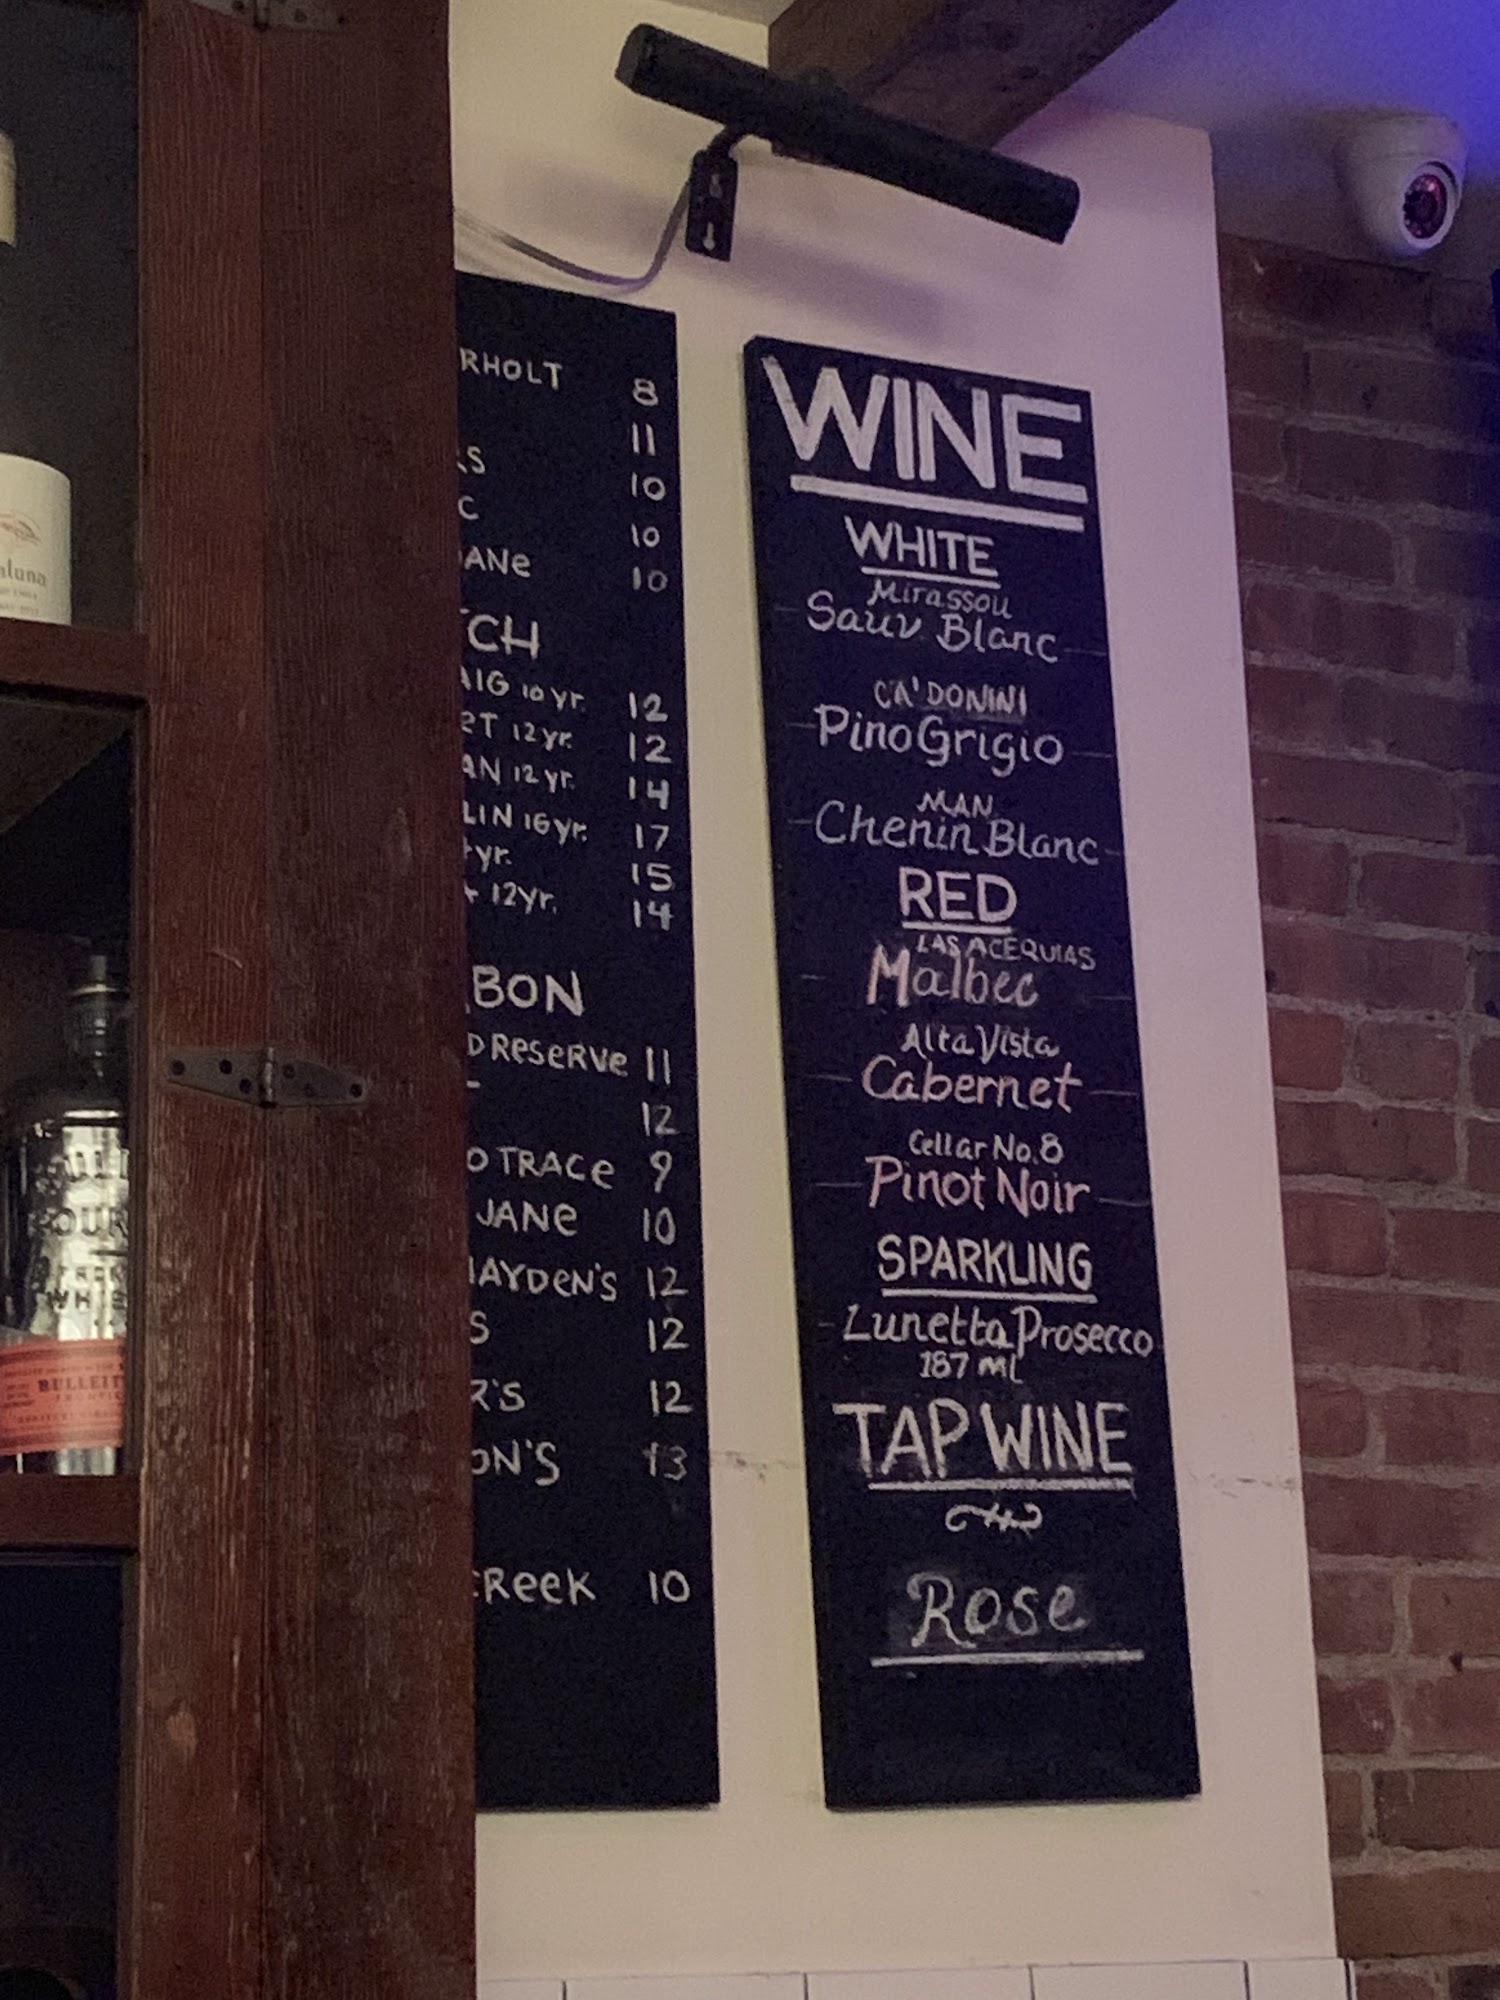 RHOLT 8
11
RS 10
C 10
ANe 10
CH
AIG 10 yr. 12
eT 12 yr. 12
AN 12 yr. 14
LIN 16 yr. 17
yr. 15
12 yr. 14
BON
D ReSeRVe 11
12
O TRACe 9
JANe 10
HAYDeN'S 12
S 12
R'S 12
ON'S 13
CReeK 10
WINE
WHITE
Mirassou
Sauv Blanc
CA' DONINI
Pino Grigio
MAN
Chenin Blanc
RED
LAS ACEQUIAS
Malbec
Alta Vista
Cabernet
Cellar No. 8
Pinot Noir
SPARKLING
Lunetta Prosecco
187 mL
TAP WINE
Rose
aluna
BULLEIT